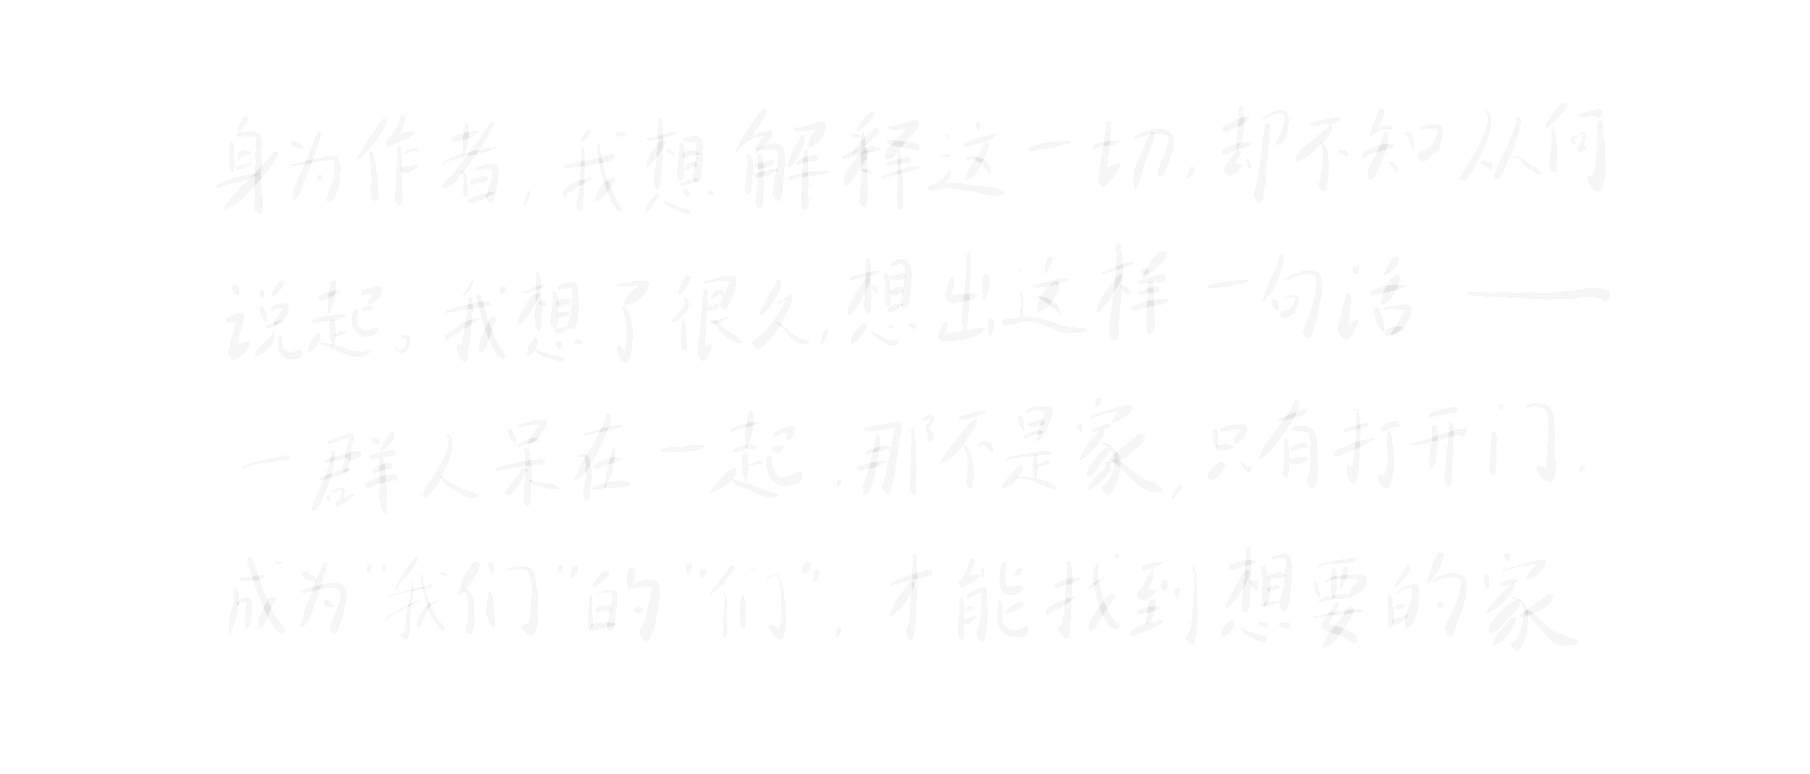 身为作者,我想解释这一切,却不知从何
说起。我想了很久,想出这样一句话——
一群人呆在一起,那不是家,只有打开门,
成为“我们”的“们”,才能找到想要的家